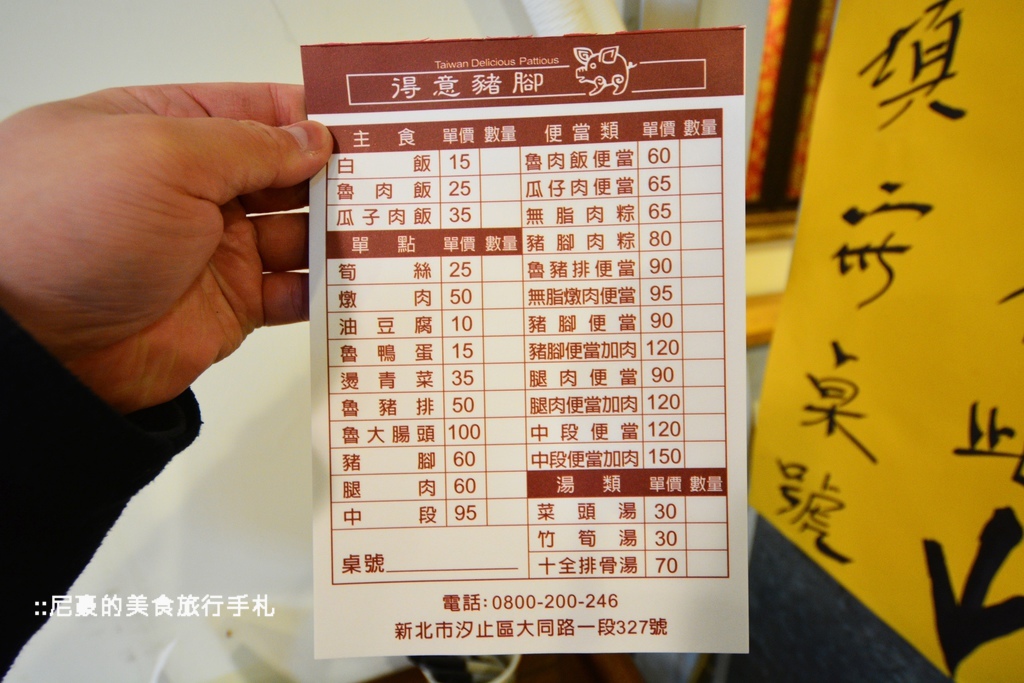 Taiwan Delicious Pattious
得意豬腳
主食 單價 數量
白飯 15
魯肉飯 25
瓜子肉飯 35
單點 單價 數量
筍絲 25
燉肉 50
油豆腐 10
魯鴨蛋 15
燙青菜 35
魯豬排 50
魯大腸頭 100
豬腳 60
腿肉 60
中段 95
桌號
便當類 單價 數量
魯肉飯便當 60
瓜仔肉便當 65
無脂肉粽 65
豬腳肉粽 80
魯豬排便當 90
無脂燉肉便當 95
豬腳便當 90
豬腳便當加肉 120
腿肉便當 90
腿肉便當加肉 120
中段便當 120
中段便當加肉 150
湯類 單價 數量
菜頭湯 30
竹筍湯 30
十全排骨湯 70
電話:0800-200-246
新北市汐止區大同路一段327號
桌號
::尼豪的美食旅行手札